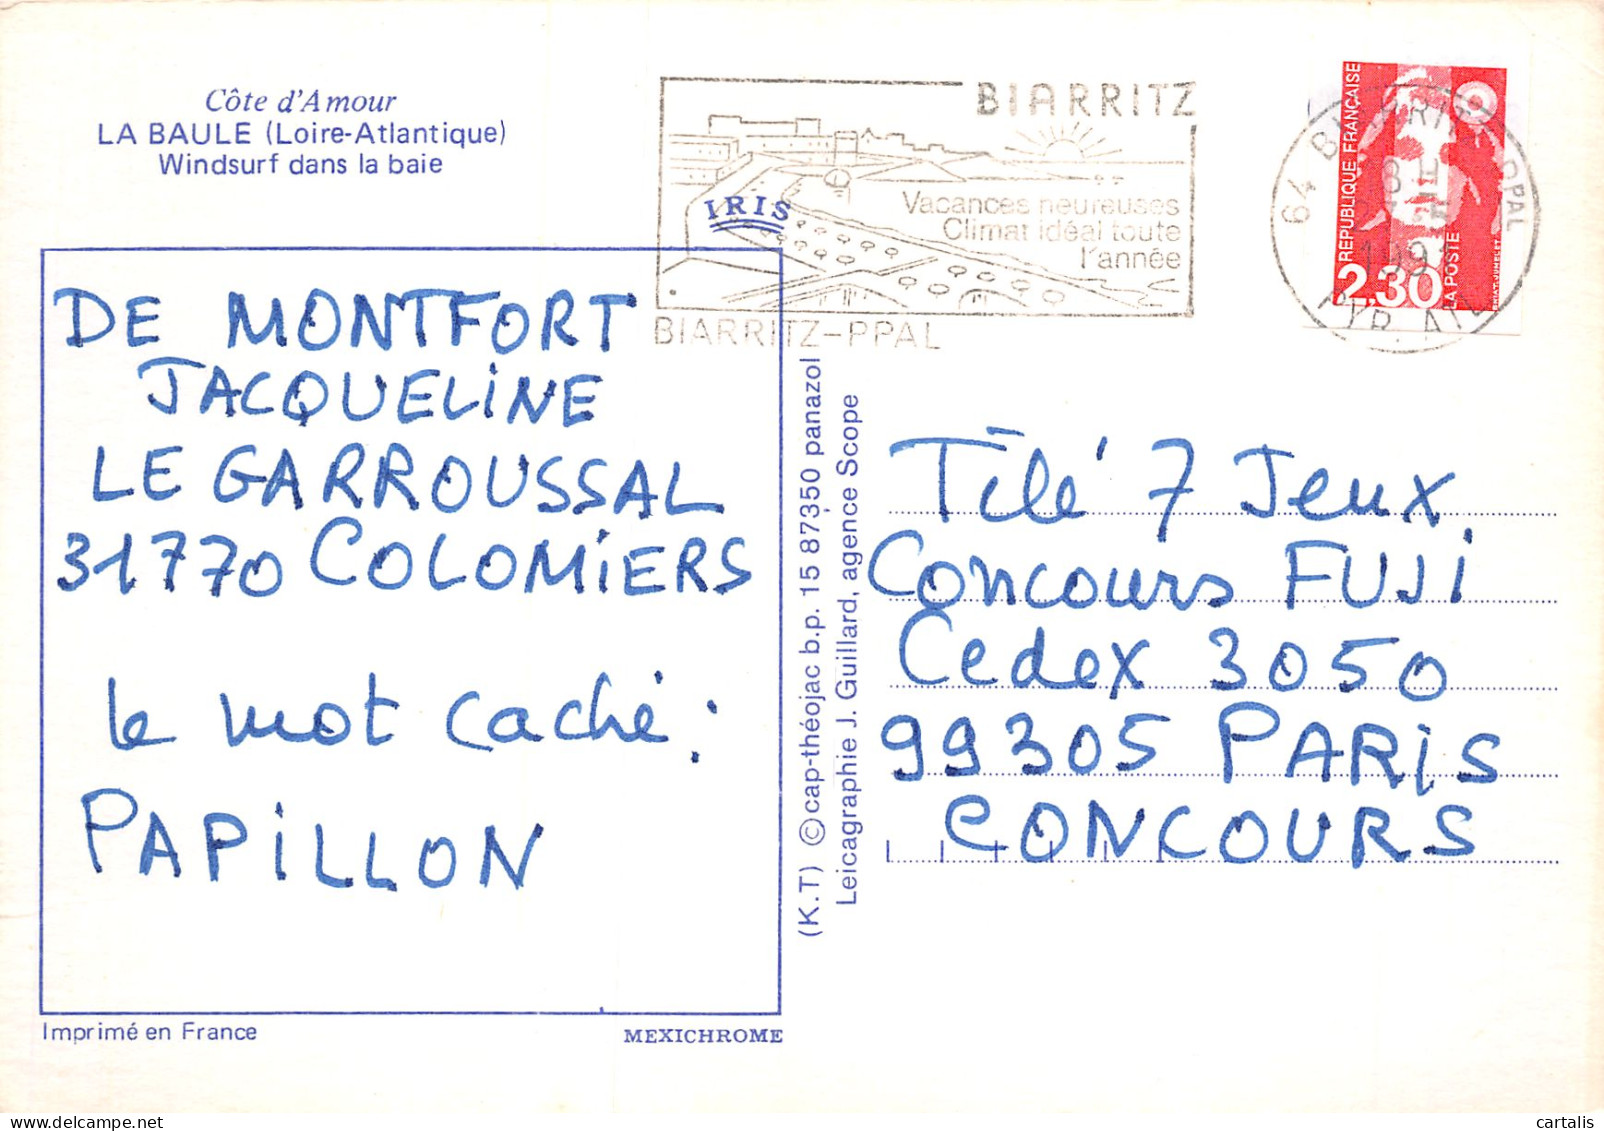 Côte d'Amour
LA BAULE (Loire-Atlantique)
Windsurf dans la baie
BIARRITZ
Vacances heureuses
Climat idéal toute
l'année
BIARRITZ-PPAL
IRIS
RÉPUBLIQUE FRANÇAISE
2,30
LA POSTE
DE MONTFORT
JACQUELINE
LE GARROUSSAL
31770 COLOMIERS
le mot caché :
PAPILLON
(K.T) © cap-théojac b.p. 15 87350 panazol
Leicagraphie J. Guillard, agence Scope
Télé 7 Jeux
Concours FUJI
Cedex 3050
99305 PARIS
CONCOURS
Imprimé en France
MEXICHROME
cartalis